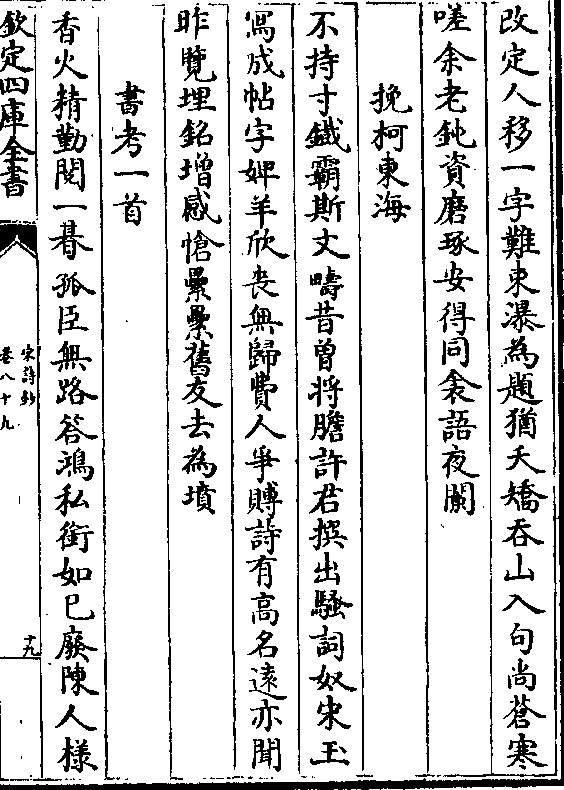 改定人移一字難束瀑為題猶夭矯吞山入句尚蒼寒
嗟余老鈍資磨琢安得同衾語夜闌
挽柯東海
不持寸鐵霸斯文疇昔曾将膽許君撰出騷詞奴宋玉
寫成帖字婢羊欣丧無歸費人爭賻詩有高名遠亦聞
昨覽埋銘增感愴纍纍舊友去為墳
書考一首
香火精勤閲一朞孤臣無路答鴻私銜如已廢陳人様
欽定四庫全書
宋詩鈔
卷八十九
十九